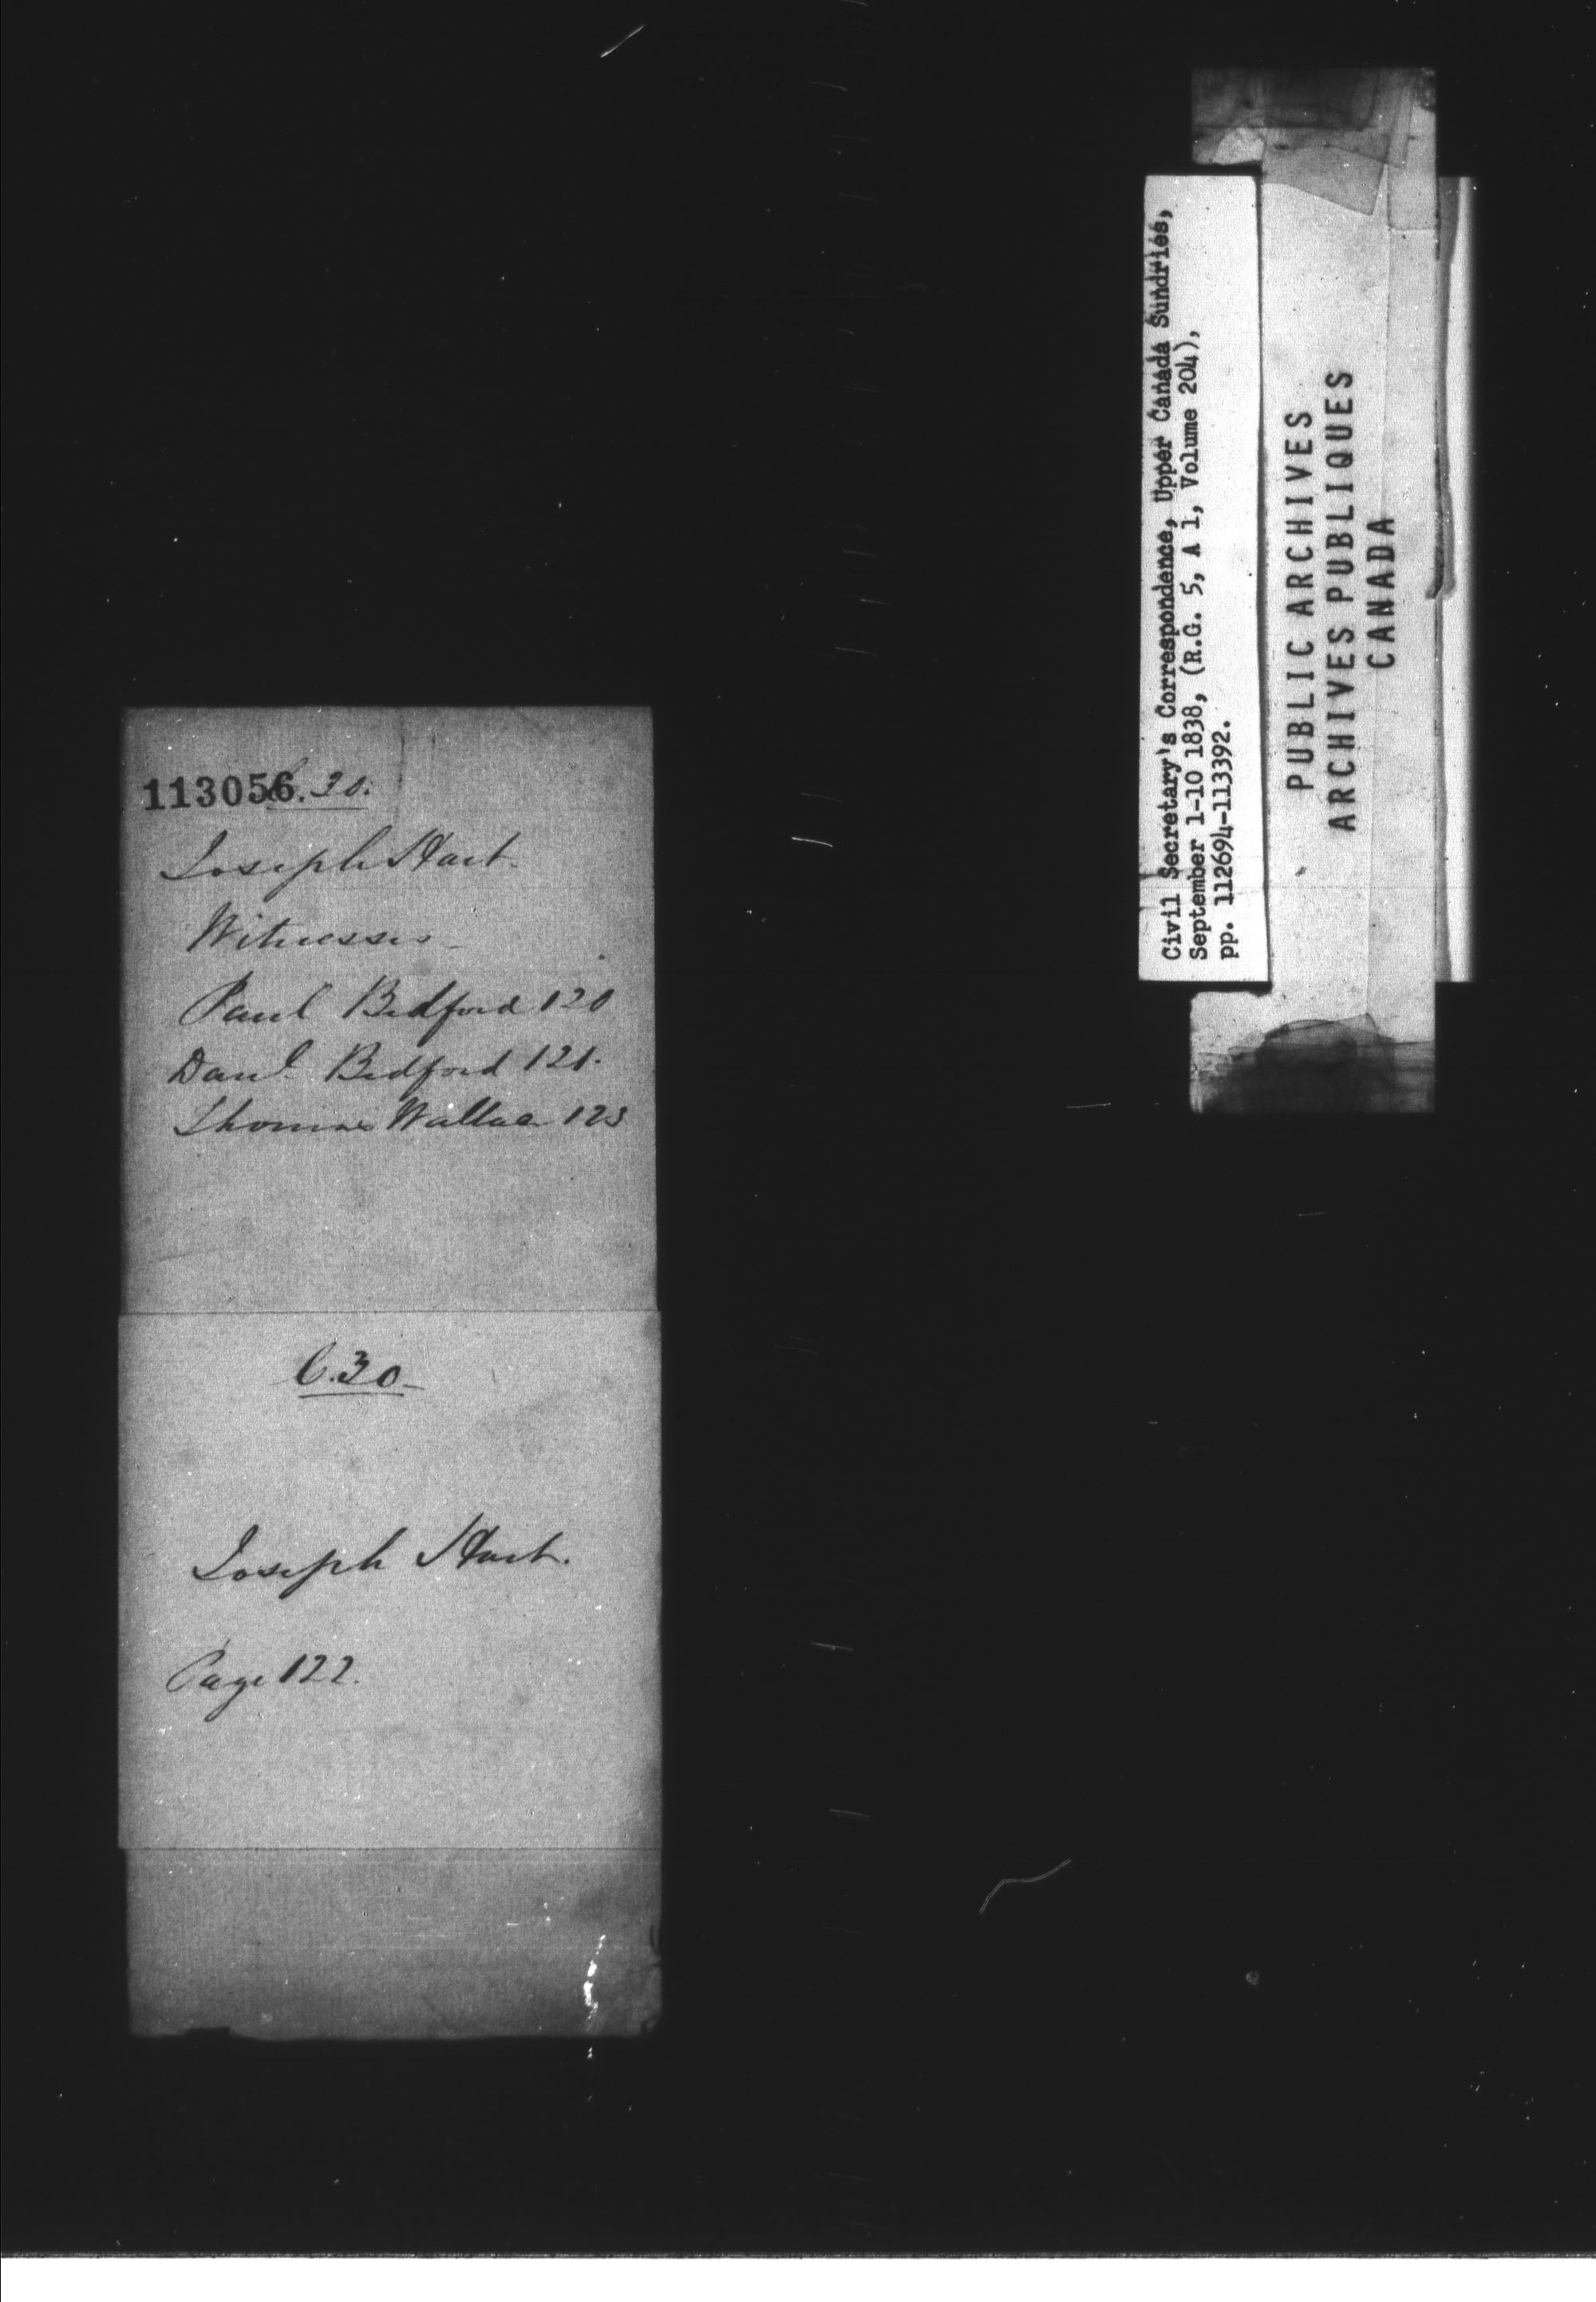 113056
C.30.
Joseph Hart.
Witnesses
Paul Bedford 120
Danl. Bedford 121.
Thomas Wallace 123
C.30
Joseph Hart.
Page 122.
Civil Secretary's Correspondence, Upper Canada Sundries,
September 1-10 1838, (R.G. 5, A 1, Volume 204),
pp. 112694-113392.
PUBLIC ARCHIVES
ARCHIVES PUBLIQUES
CANADA